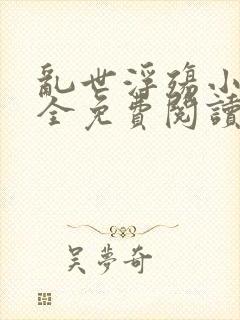 亂世浮殤小
全免費閱讀
吴夢奇